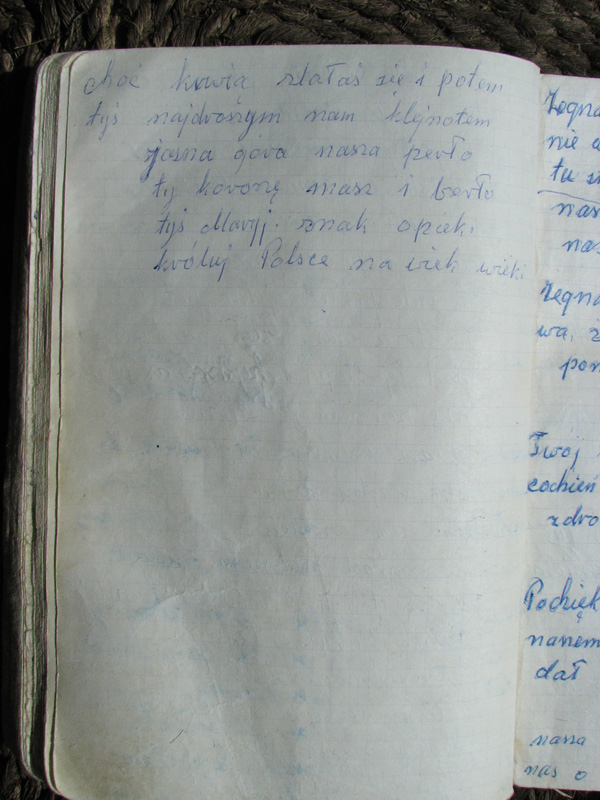 choć krwią zlałaś się i potem
tyś najdroszym nam klejnotem
jasna góra nasza perło
ty koronę masz i berło
tyś Maryj. znak opieki
króluj Polsce na wiek wieki
Żegna
nie
tu
nas
nas
Żegna
wa, ż
pom
Twoj
codzień
zdro
Podzięk
nanem
dał
nasza
nas o